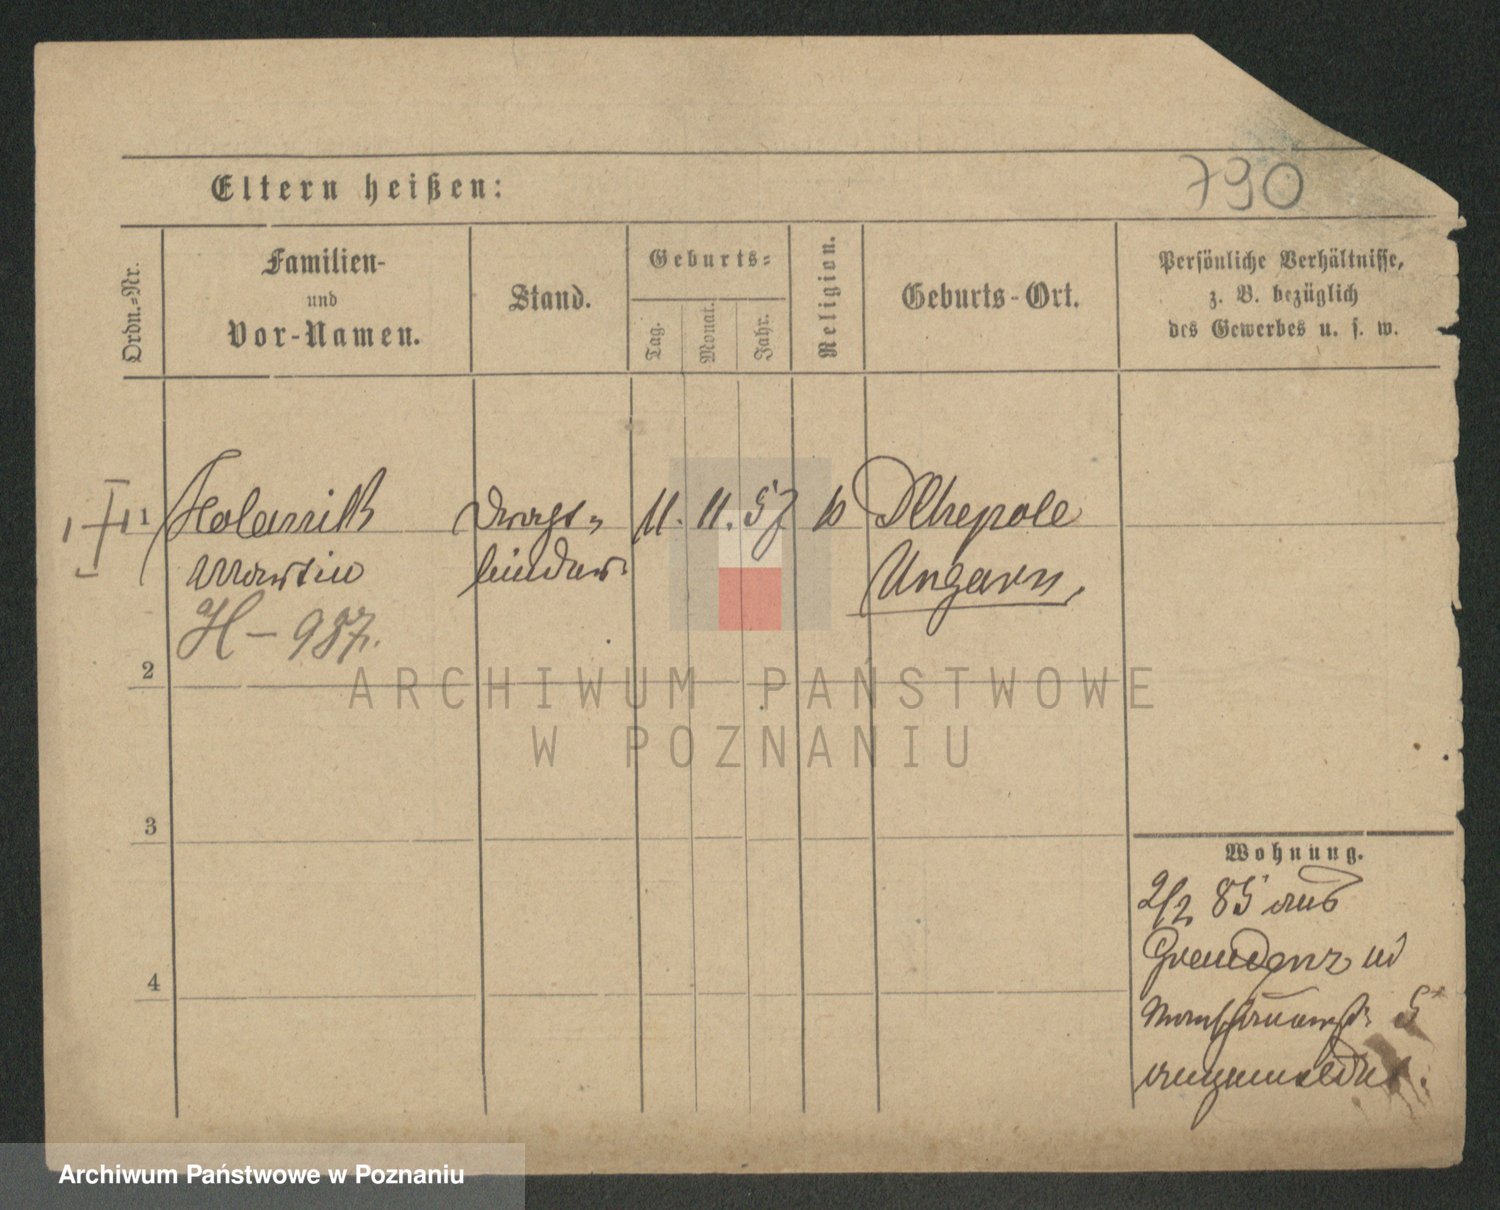 790
Eltern heißen:
Ordn.-Nr.
Familien-
und
Vor-Namen.
Stand.
Geburts-
Tag.
Monat.
Jahr.
Religion.
Geburts-Ort.
Persönliche Verhältnisse,
z. B. bezüglich
des Gewerbes u. s. w.
1
Draht-
11. 11. 57
Martin
binder
Ungarn.
H - 987.
2
ARCHIWUM PAŃSTWOWE
W POZNANIU
3
Wohnung.
2/2 85 aus
4
Graudenz
5
angemeldet.
Archiwum Państwowe w Poznaniu